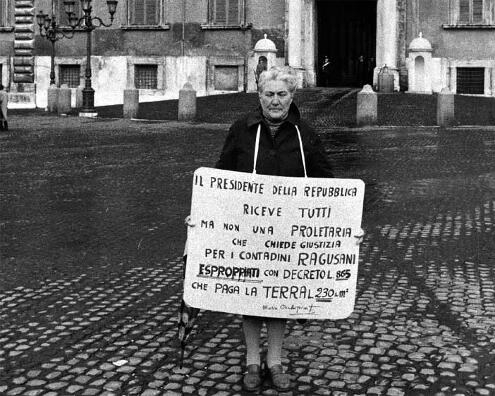 IL PRESIDENTE DELLA REPUBBLICA
RICEVE TUTTI
MA NON UNA PROLETARIA
CHE CHIEDE GIUSTIZIA
PER I CONTADINI RAGUSANI
ESPROPRIATI CON DECRETO L. 865
CHE PAGA LA TERRA L 230 m²
Maria Occhipinti